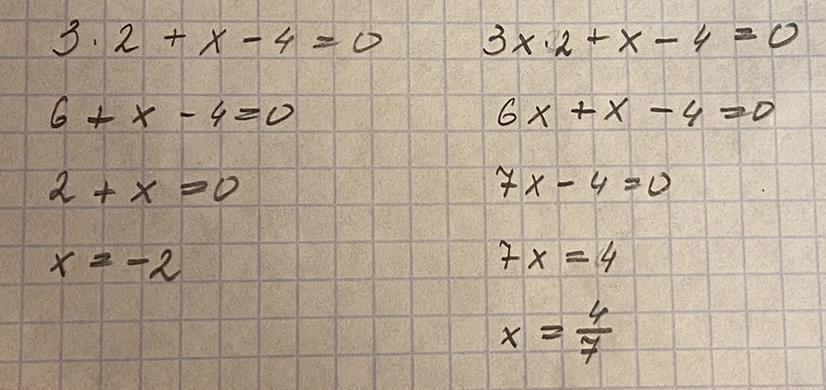 3·2+x-4=0
6+x-4=0
2+x=0
x=-2
3x·2+x-4=0
6x+x-4=0
7x-4=0
7x=4
x=4/7